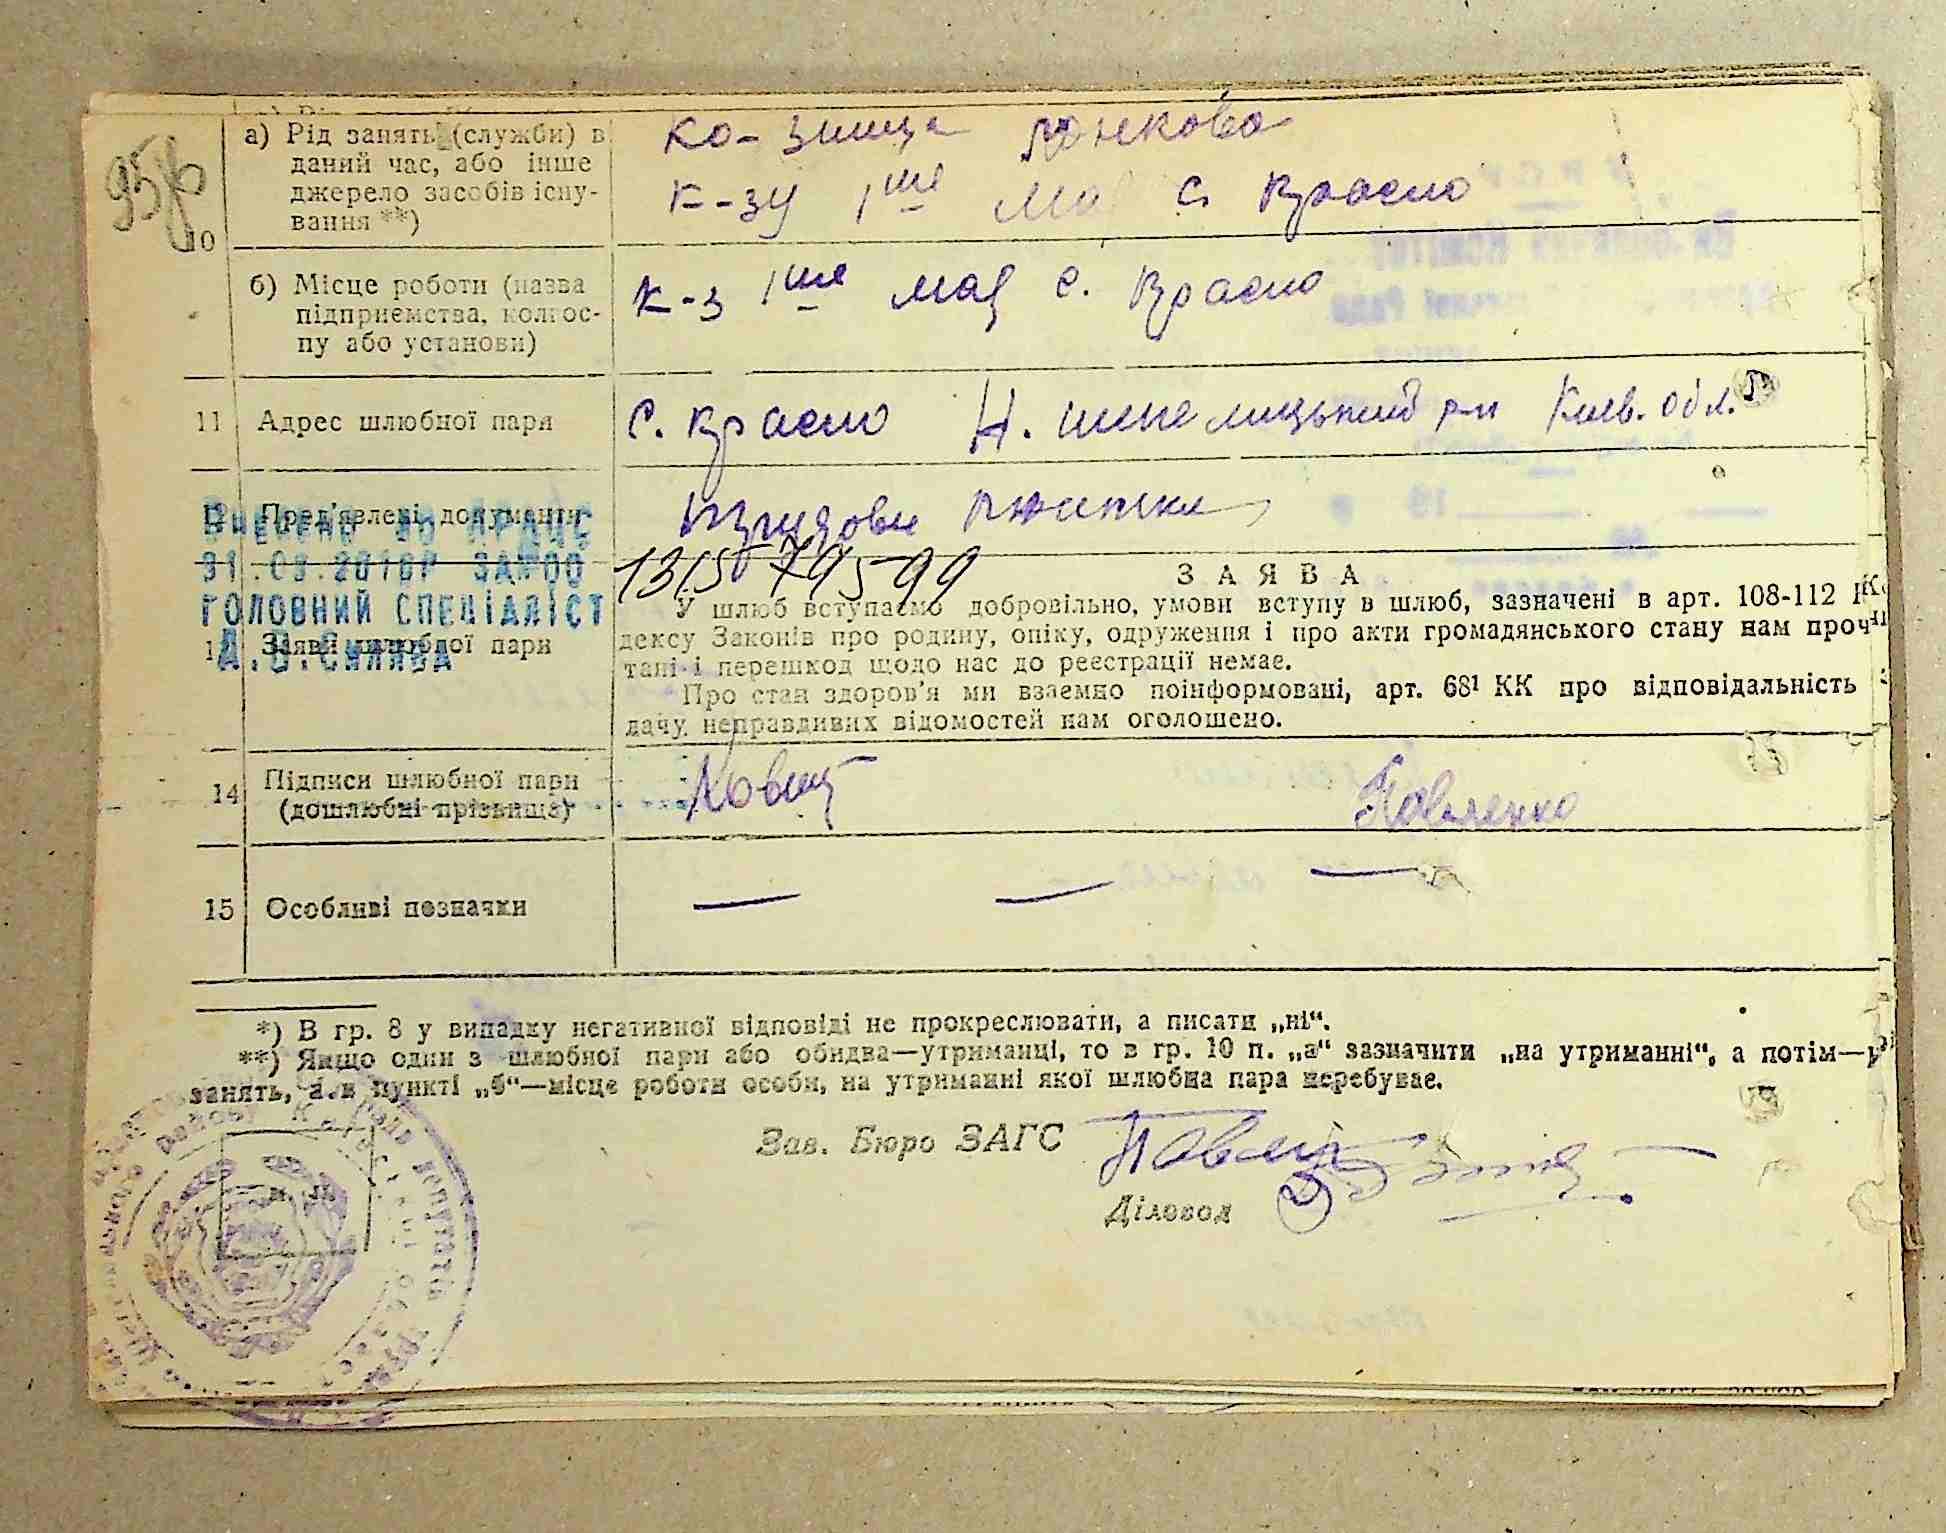 95
а) Рід занять (службн) в
даний час, або інше
джерело засобів існу-
вання **)
10
к-зу 1ше Мая с. Красно
б) Місце роботи (назва
підприємства, колгос-
пу або установи)
к-з 1ше мая с. Красно
11 Адрес шлюбної пари
с. Красно Н. шепелицький р-н Київ. обл.
12 Пред'явлені документи
ВНЕСЕНО ДО ДРАЦС
ГОЛОВНИЙ СПЕЦІАЛІСТ
13 Заяви шлюбної пари
З А Я В А
У шлюб вступаємо добровільно, умови вступу в шлюб, зазначені в арт. 108-112 Ко
дексу Законів про родину, опіку, одруження і про акти громадянського стану нам прочи
тані і перешкод щодо нас до реєстрації немає.
Про стан здоров'я ми взаємно поінформовані, арт. 68¹ КК про відповідальність
дачу неправдивих відомостей нам оголошено.
14 Підписи шлюбної пари
(дошлюбні прізвища)
Коваленко
15 Особливі позначки
— — —
*) В гр. 8 у випадку негативної відповіді не прокреслювати, а писати „ні“.
**) Якщо один з шлюбної пари або обидва—утриманці, то в гр. 10 п. „а“ зазначити „на утриманні“, а потім—р
занять, а в пункті „б“—місце роботи особи, на утриманні якої шлюбна пара перебуває.
Зав. Бюро ЗАГС
Діловод